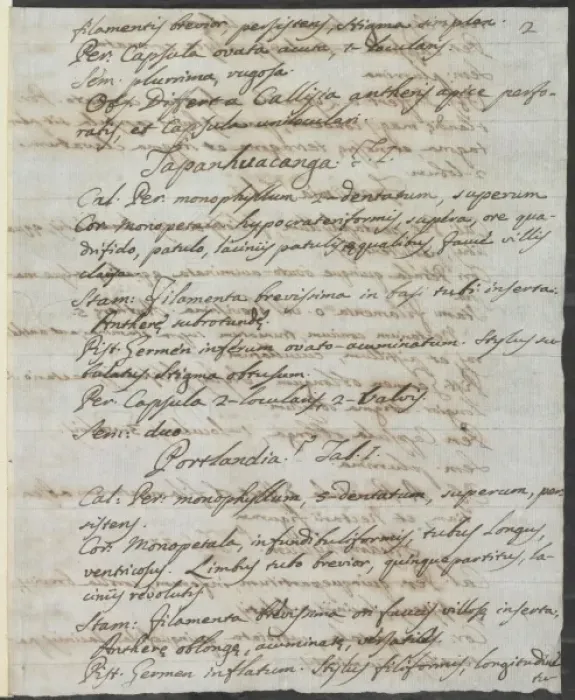 2
filamentis brevior persistens, stigma simplex.
Per. Capsula ovata acuta, 1-locularis.
Sem. plurima, rugosa.
Obs. Differt a Callisia antheris apice perfo-
ratis, et Capsula uniloculari.
Tapanhuacanga.
Cal. Per. monophyllum 2-dentatum, superum
Cor. Monopetala, hypocrateriformis, supera, ore qua-
drifido, patulo, laciniis patulis ęqualibus, fauce villis
clausa.
Stam: Filamenta brevissima in basi tubi inserta.
Antherę subrotundę.
Pist. Germen inferum ovato-acuminatum. Stylus su-
bulatus, stigma obtusum.
Per. Capsula 2-locularis, 2-valvis.
Sem: duo
Portlandia. Tab. 1.
Cal: Per: monophyllum, 5-dentatum, superum, per-
sistens.
Cor. Monopetala, infundibuliformis, tubus longus,
ventricosus. Limbus tubo brevior, quinquepartitus, la-
ciniis revolutis
Stam: Filamenta brevissima ori faucis villosę inserta,
Antherę oblongę, acuminatę, versatiles.
Pist. Germen inflatum. Stylus filiformis, longitudine
tu-